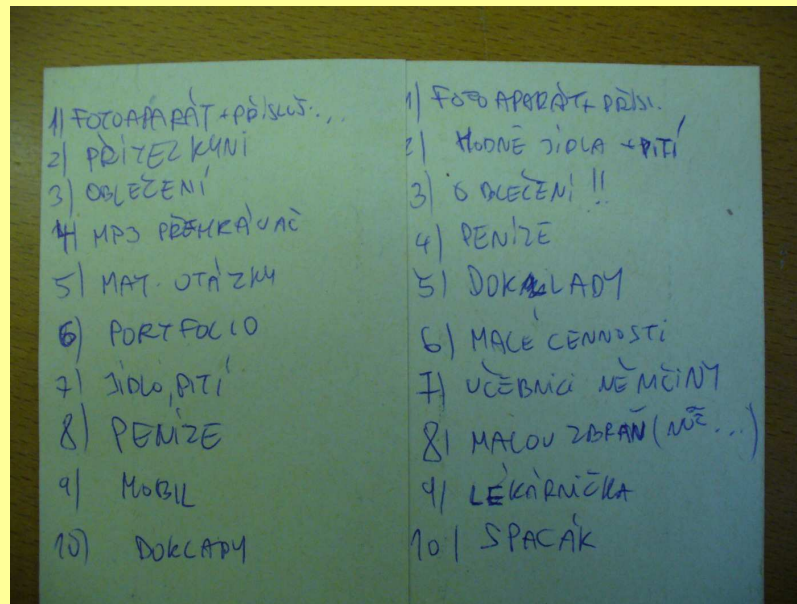 1) FOTOAPARÁT + PŘÍSLUŠ...
2) PŘÍTELKYNI
3) OBLEČENÍ
4) MP3 PŘEHRÁVAČ
5) MAT. OTÁZKY
6) PORTFOLIO
7) JÍDLO, PITÍ
8) PENÍZE
9) MOBIL
10) DOKLADY
1) FOTOAPARÁT + PŘÍSL.
2) HODNĚ JÍDLA + PITÍ
3) OBLEČENÍ !!
4) PENÍZE
5) DOKLADY
6) MALÉ CENNOSTI
7) UČEBNICI NĚMČINY
8) MALOU ZBRAŇ (NŮŽ...)
9) LÉKÁRNIČKA
10) SPACÁK